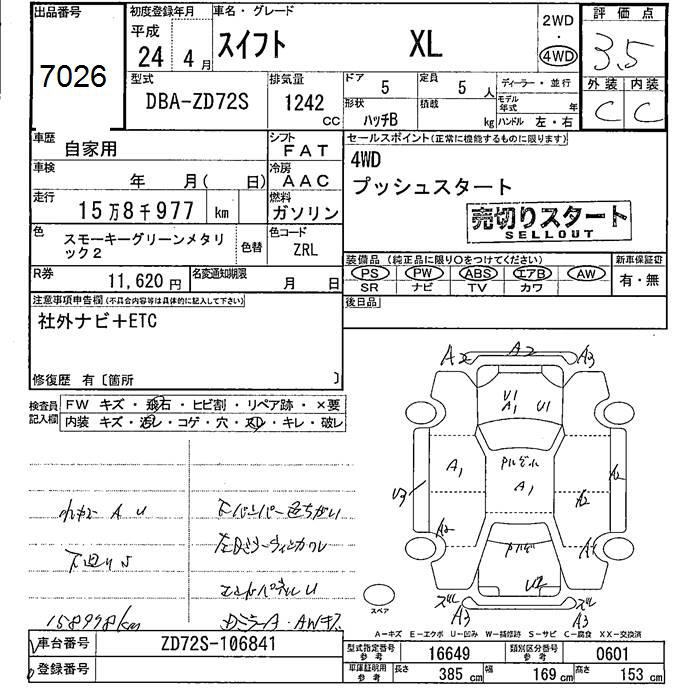 出品番号
7026
初度登録年月
平成
24 4 月
車名・グレード
スイフト XL
2WD
・
4WD
評価点
3.5
外装 内装
C C
型式
DBA-ZD72S
排気量
1242
CC
ドア
5
定員
5 人
形状
ハッチB
積載
kg
ディーラー・並行
モデル年式 年
ハンドル 左・右
車歴
自家用
シフト
FAT
車検
年 月( 日)
冷房
AAC
走行
15万8千977 km
燃料
ガソリン
色
スモーキーグリーンメタリ
ック2
色替
色コード
ZRL
R券
11,620 円
名変通知期限
月 日
セールスポイント(正常に機能するものに限ります)
4WD
プッシュスタート
売切りスタート
SELLOUT
装備品(純正品に限り○をつけてください)
PS PW ABS エアB AW
SR ナビ TV カワ
新車保証書
有・無
後日品
注意事項申告欄(不具合内容等は具体的に記入して下さい)
社外ナビ+ETC
修復歴 有〔箇所 〕
検査員
記入欄
FW キズ・飛石・ヒビ割・リペア跡・×要
内装 キズ・汚レ・コゲ・穴・スレ・キレ・破レ
A U
下廻りS
158998km
下バンパー色ちがい
エンドパネルU
Dミラー A・AWキズ
A2 A2 A3
U1 A1 U1
A1
A1
A2
A2
U3
A2
A1
U2
ズレ ズレ
A3 A3
スペア
A-キズ E-エクボ U-凹み W-補修跡 S-サビ C-腐食 XX-交換済
車台番号
ZD72S-106841
登録番号
型式指定番号 参考
16649
類別区分番号 参考
0601
車庫証明用 参考
長さ 385 cm 幅 169 cm 高さ 153 cm